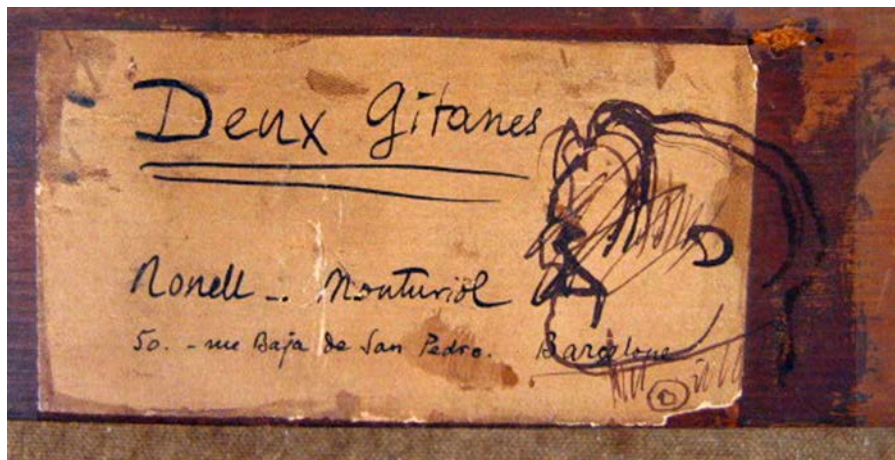 Deux Gitanes
Nonell _.. Monturiol
50. - rue Baja de San Pedro. Barcelone